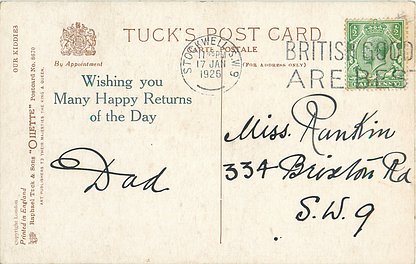 OUR KIDDIES
Copyright London
Printed in England
Raphael Tuck & Sons "OILETTE" Postcard No. 8670
ART PUBLISHERS TO THEIR MAJESTIES THE KING & QUEEN.
By Appointment
TUCK'S POST CARD
CARTE POSTALE
(FOR ADDRESS ONLY)
Wishing you
Many Happy Returns
of the Day
Dad
STOCKWELL S.W.9
17 JAN
1926
BRITISH GOOD
ARE BES
Miss. Rankin
334 Brixton Rd
S.W.9